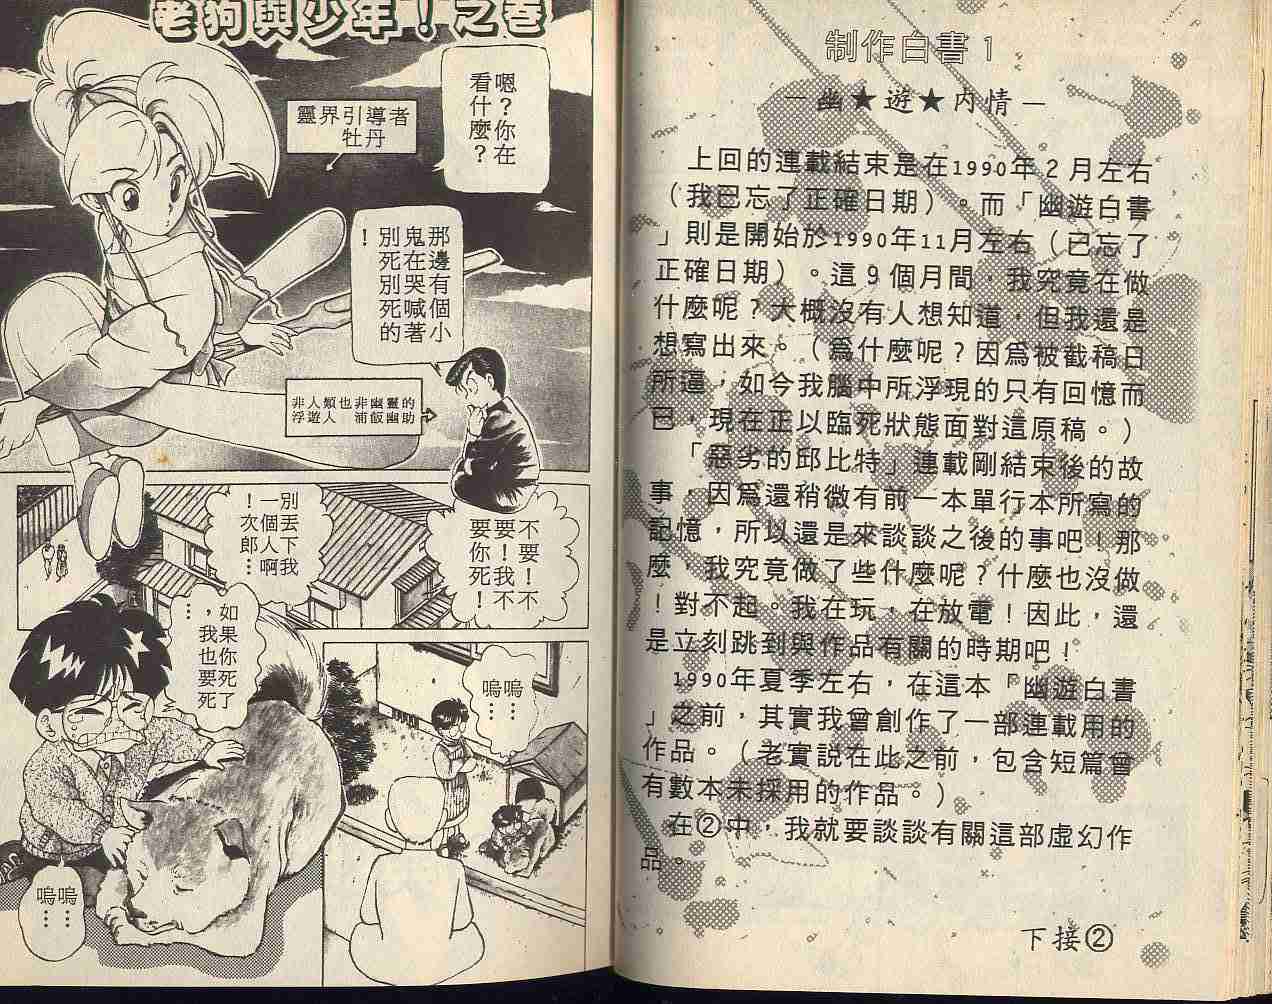 老狗與少年！之巻
嗯？你在
看什麼？
靈界引導者
牡丹
那邊有個小
鬼在哭喊著
別死別死的
！
非人類也非幽靈的
浮遊人　浦飯幽助
不要！不
要！我不
要你死！
別丟下我
一個人啊
！次郎…
如果你死了
，我也要死
…
嗚嗚
……
嗚嗚
……
制作白書1
—幽★遊★內情—
上回的連載結束是在1990年2月左右
（我已忘了正確日期）。而「幽遊白書
」則是開始於1990年11月左右（已忘了
正確日期）。這9個月間，我究竟在做
什麼呢？大概沒有人想知道，但我還是
想寫出來。（爲什麼呢？因爲被截稿日
所逼，如今我腦中所浮現的只有回憶而
已，現在正以臨死狀態面對這原稿。）
「惡劣的邱比特」連載剛結束後的故
事，因爲還稍微有前一本單行本所寫的
記憶，所以還是來談談之後的事吧！那
麼，我究竟做了些什麼呢？什麼也沒做
！對不起。我在玩，在放電！因此，還
是立刻跳到與作品有關的時期吧！
1990年夏季左右，在這本「幽遊白書
」之前，其實我曾創作了一部連載用的
作品。（老實說在此之前，包含短篇曾
有數本未採用的作品。）
在②中，我就要談談有關這部虛幻作
品。
下接②